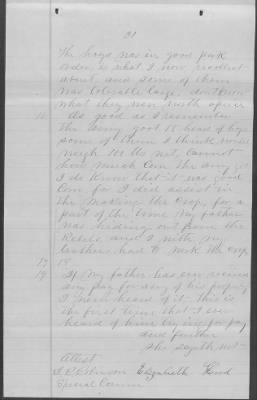 21
The hogs was in good pork
order is what I now recollect
about and some of them
was tolerable large, don't know
what they were worth apiece
16 As good as I remember
the army got 18 head of hogs
some of them I think would
weigh 200 lbs net, cannot
how much Corn the army got
I do know that it was good
Corn for I did assist in
the making the crop, for a
part of the time My father
was hiding out from the
Rebels and I with my
brothers had to work the crop
17 18
19 If my father has ever received
any pay for any of his property
I never heard of it - This is
the first time that I ever
heard of him trying for pay
and further
She sayeth not
Attest
Robinson Elizabeth Hood
Special Commr